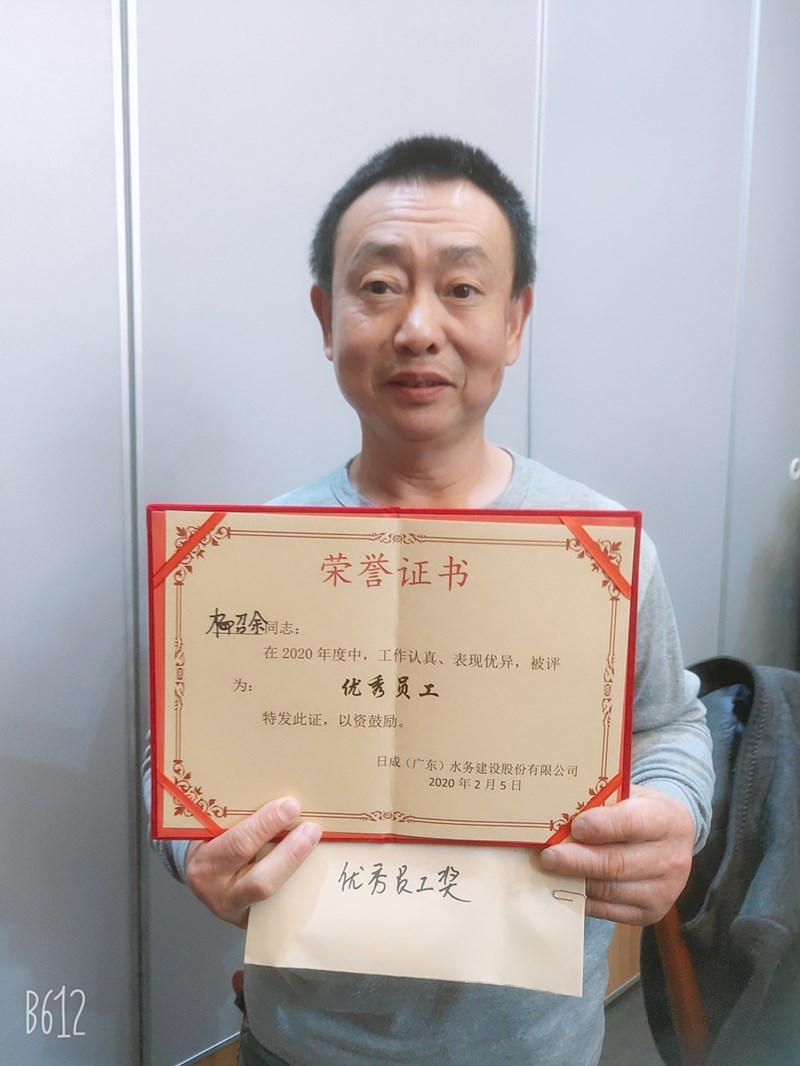 荣誉证书
柳召余同志：
在 2020 年度中，工作认真、表现优异，被评
为： 优秀员工
特发此证，以资鼓励。
日成（广东）水务建设股份有限公司
2020 年 2 月 5 日
优秀员工奖
B612